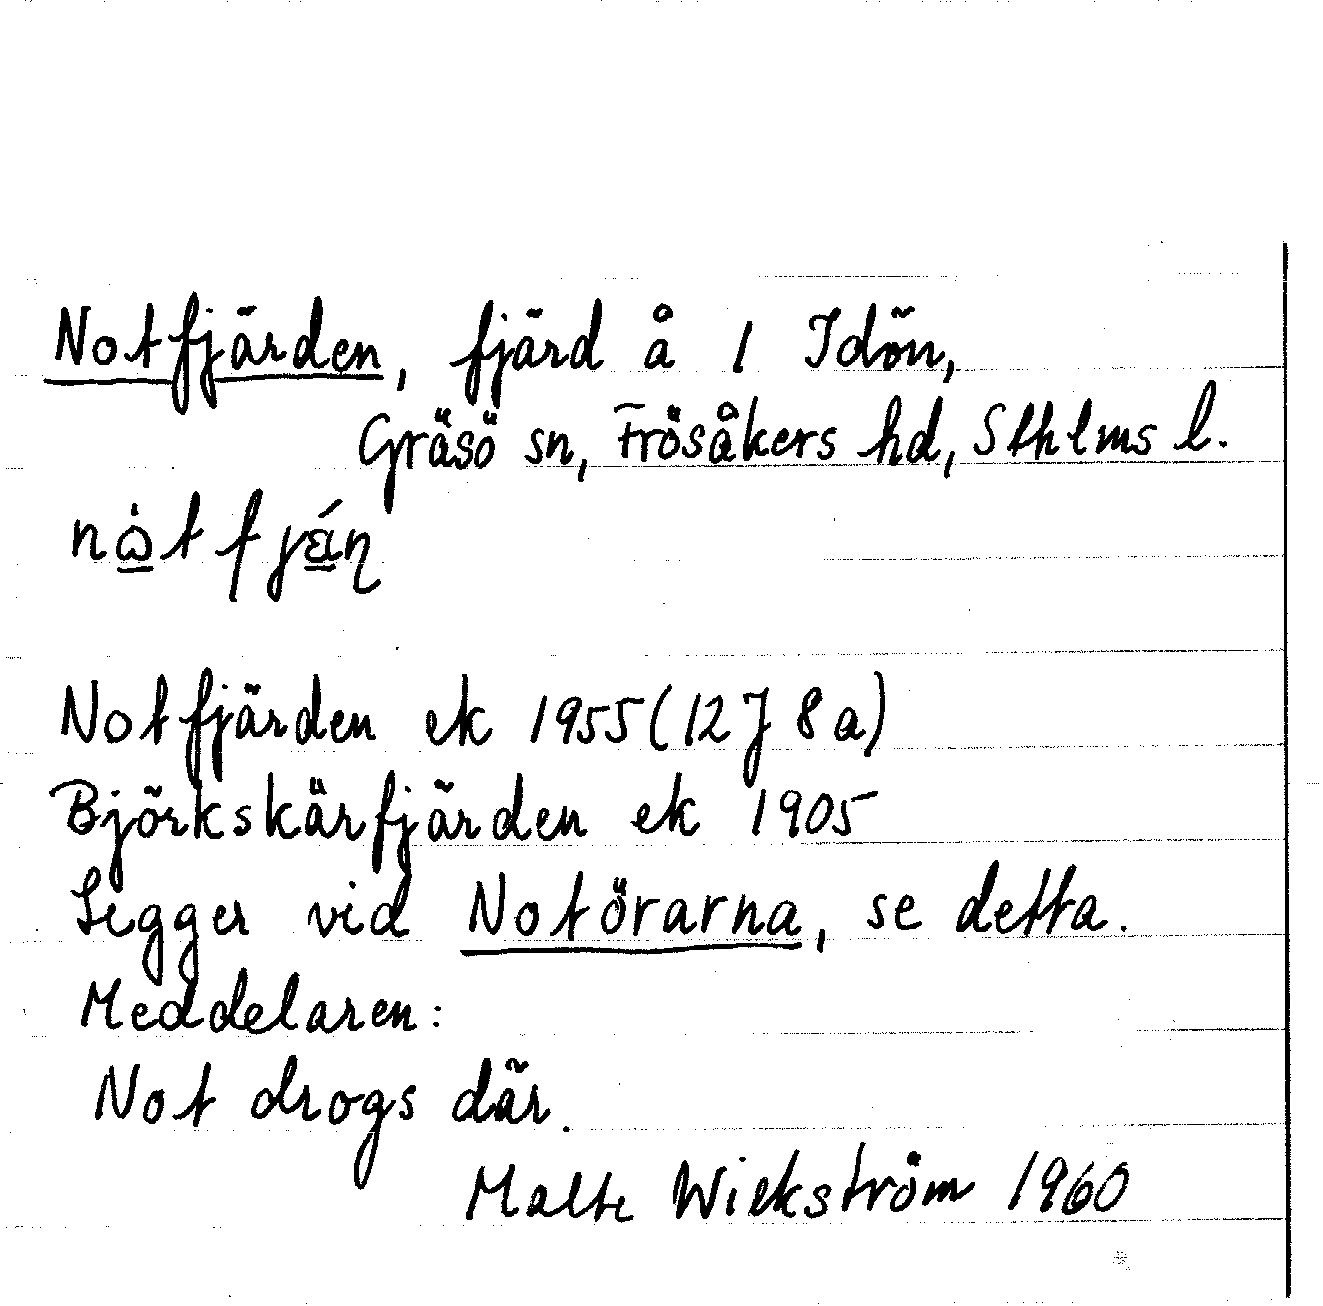 Notfjärden, fjärd å 1 Idön,
Gräsö sn, Frösåkers hd, Sthlms l.
Notfjärden ek 1955 (12 J 8 a)
Björkskärfjärden ek 1905
Ligger vid Notörarna, se detta.
Meddelaren:
Not drogs där.
Malte Wickström 1960